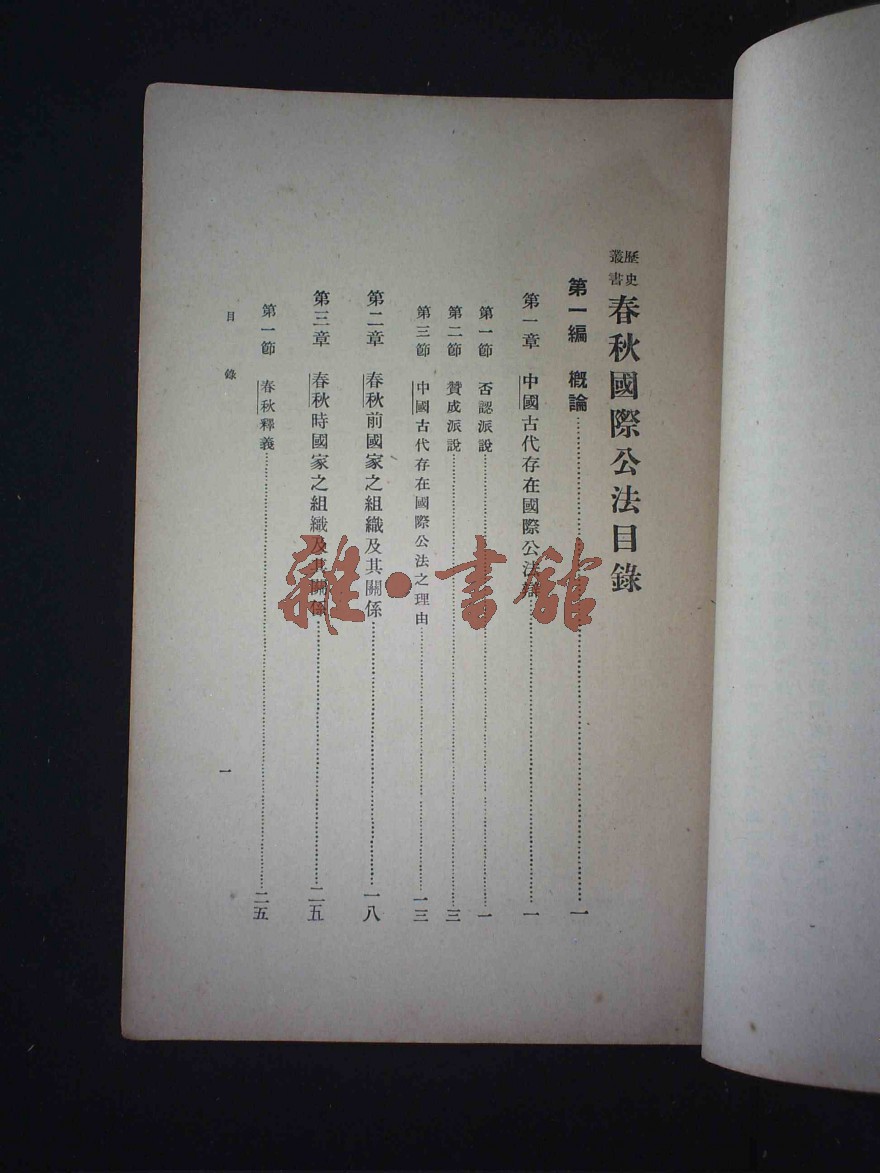 歷史叢書
春秋國際公法目錄
第一編　概論……一
第一章　中國古代存在國際公法辯……一
第一節　否認派說……一
第二節　贊成派說……三
第三節　中國古代存在國際公法之理由……一三
第二章　春秋前國家之組織及其關係……一八
第三章　春秋時國家之組織及其關係……二五
第一節　春秋釋義……二五
目錄
一
雜·書館